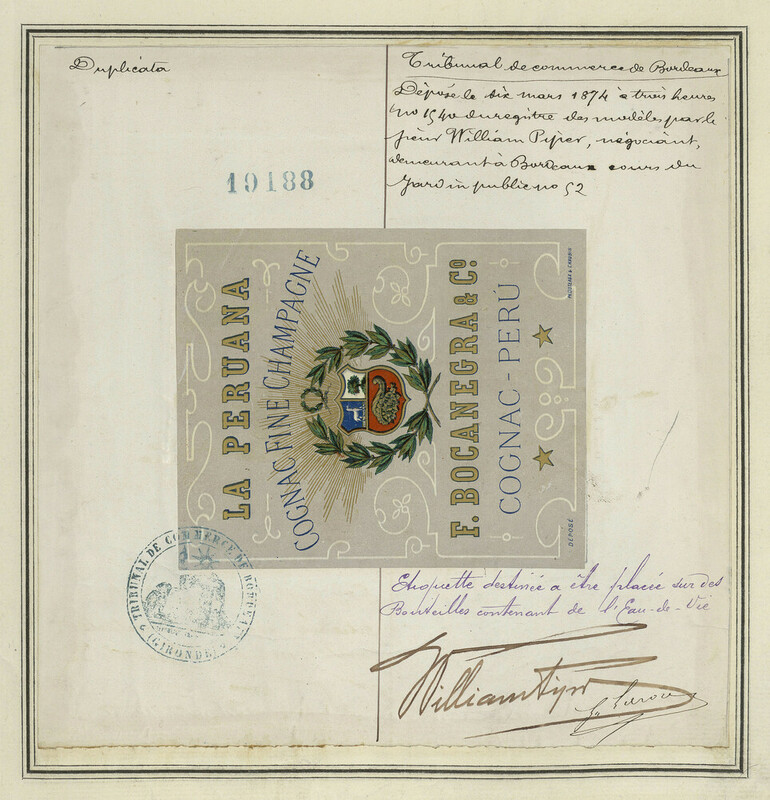 Duplicata
Tribunal de commerce de Bordeaux
Déposé le dix mars 1874 à trois heures
no 1540 du registre des modèles par le
sieur William Piper, négociant,
demeurant à Bordeaux cours du
Jardin public no 52
10188
LA PERUANA
COGNAC FINE CHAMPAGNE
F. BOCANEGRA & Co.
COGNAC - PERÚ
DÉPOSÉ
TRIBUNAL DE COMMERCE DE BORDEAUX
(GIRONDE)
Etiquette destinée a être placée sur des
Bouteilles contenant de l'Eau-de-Vie
William Piper